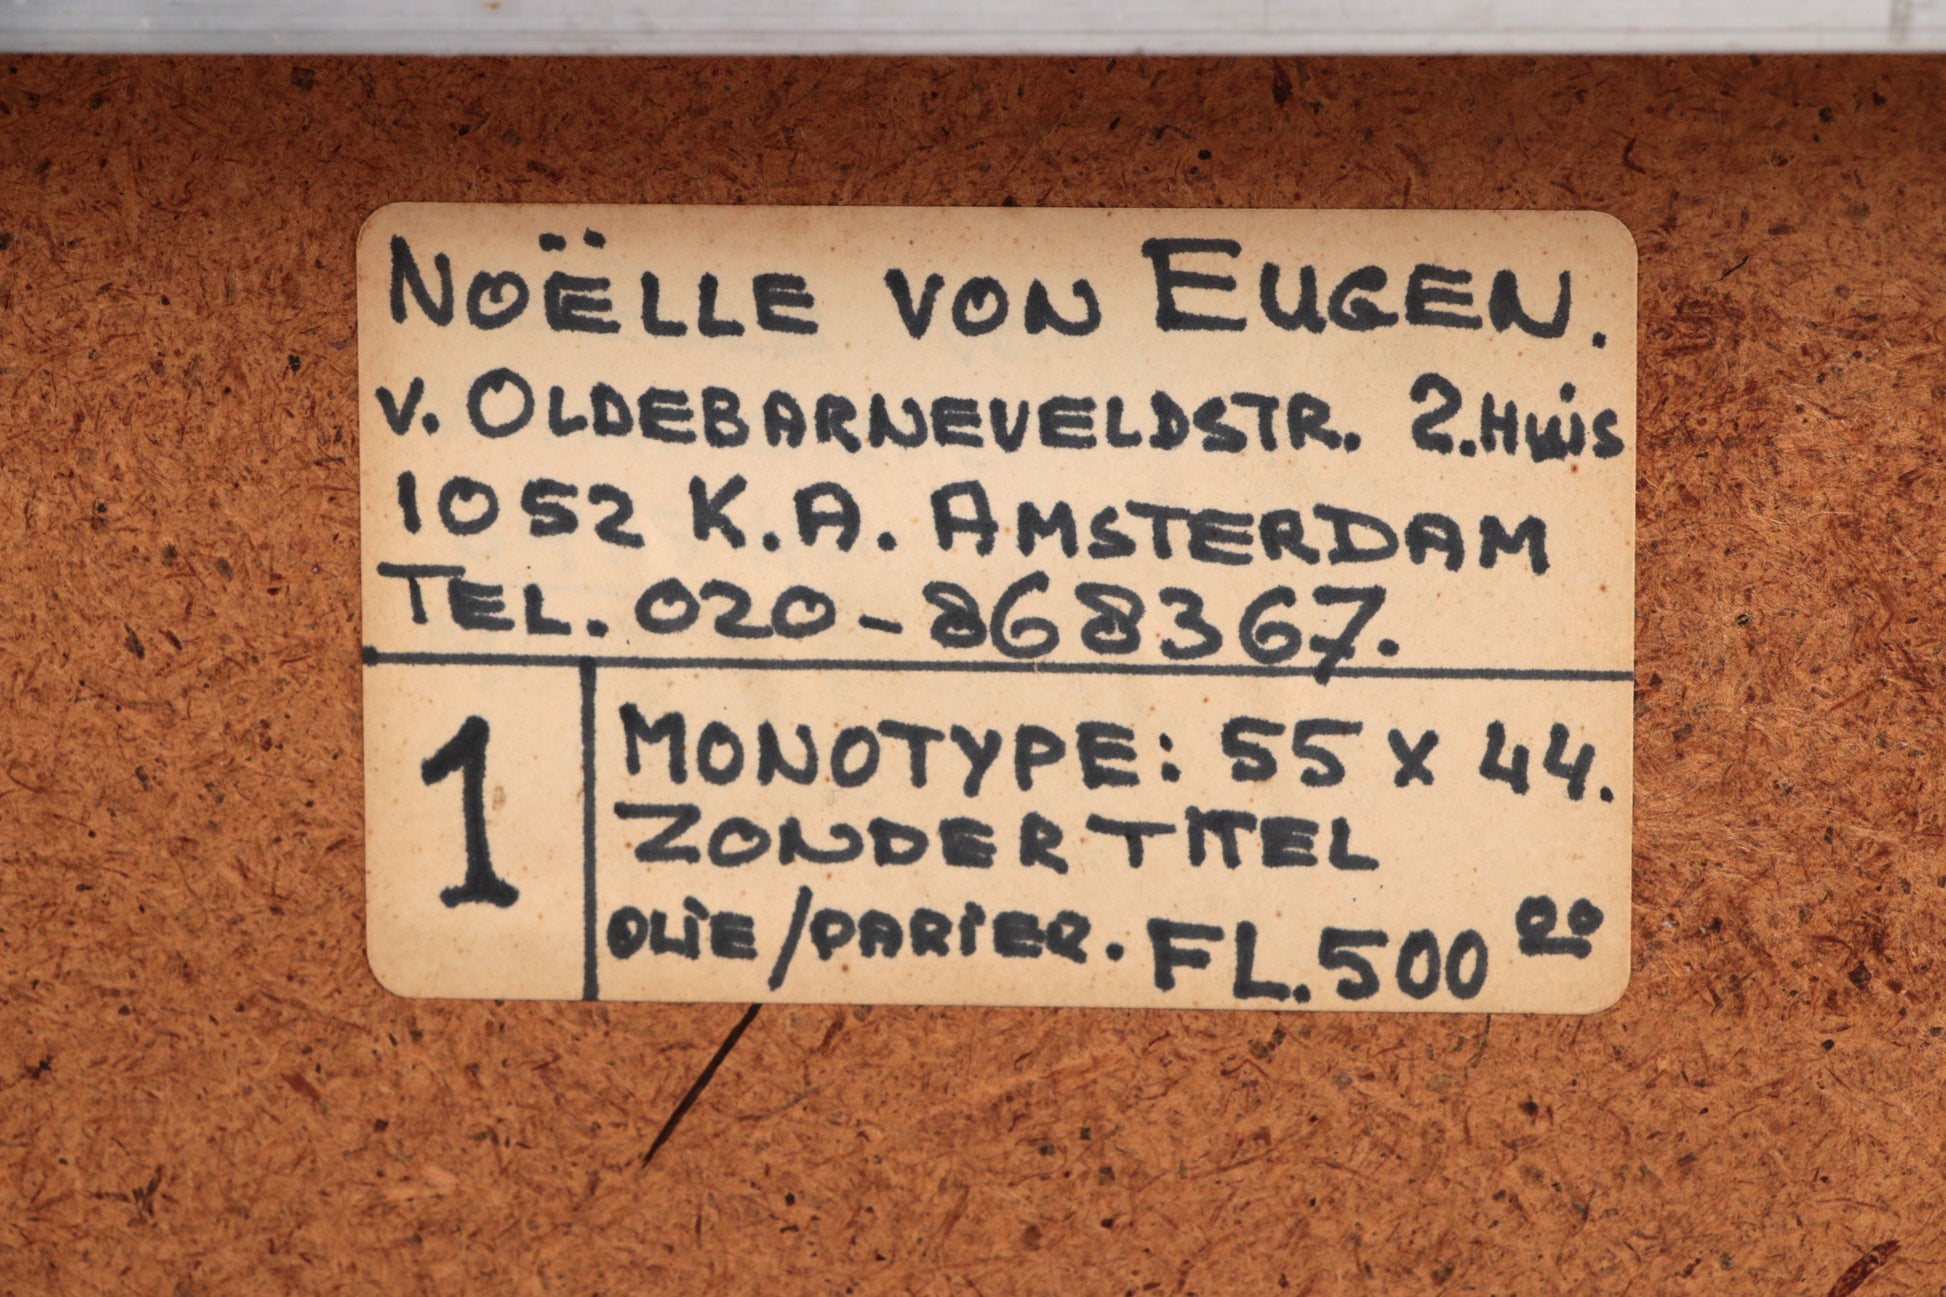 NOËLLE VON EUGEN.
V. OLDEBARNEVELDSTR. 2.HUIS
1052 K.A. AMSTERDAM
TEL. 020-868367.
1
MONOTYPE: 55 X 44.
ZONDER TITEL
OLIE/PAPIER. FL.500 00